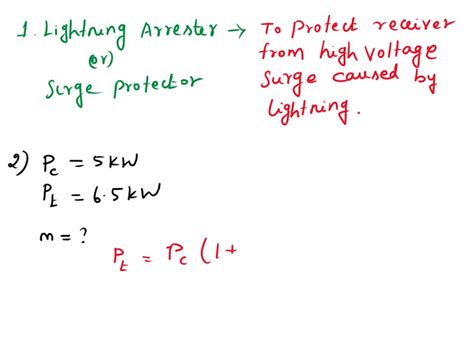 1. Lightning Arrester → To protect receiver
(or) from high voltage
Surge protector surge caused by
lightning.
2) Pc = 5kW
Pt = 6.5kW
m = ?
Pt = Pc (1+